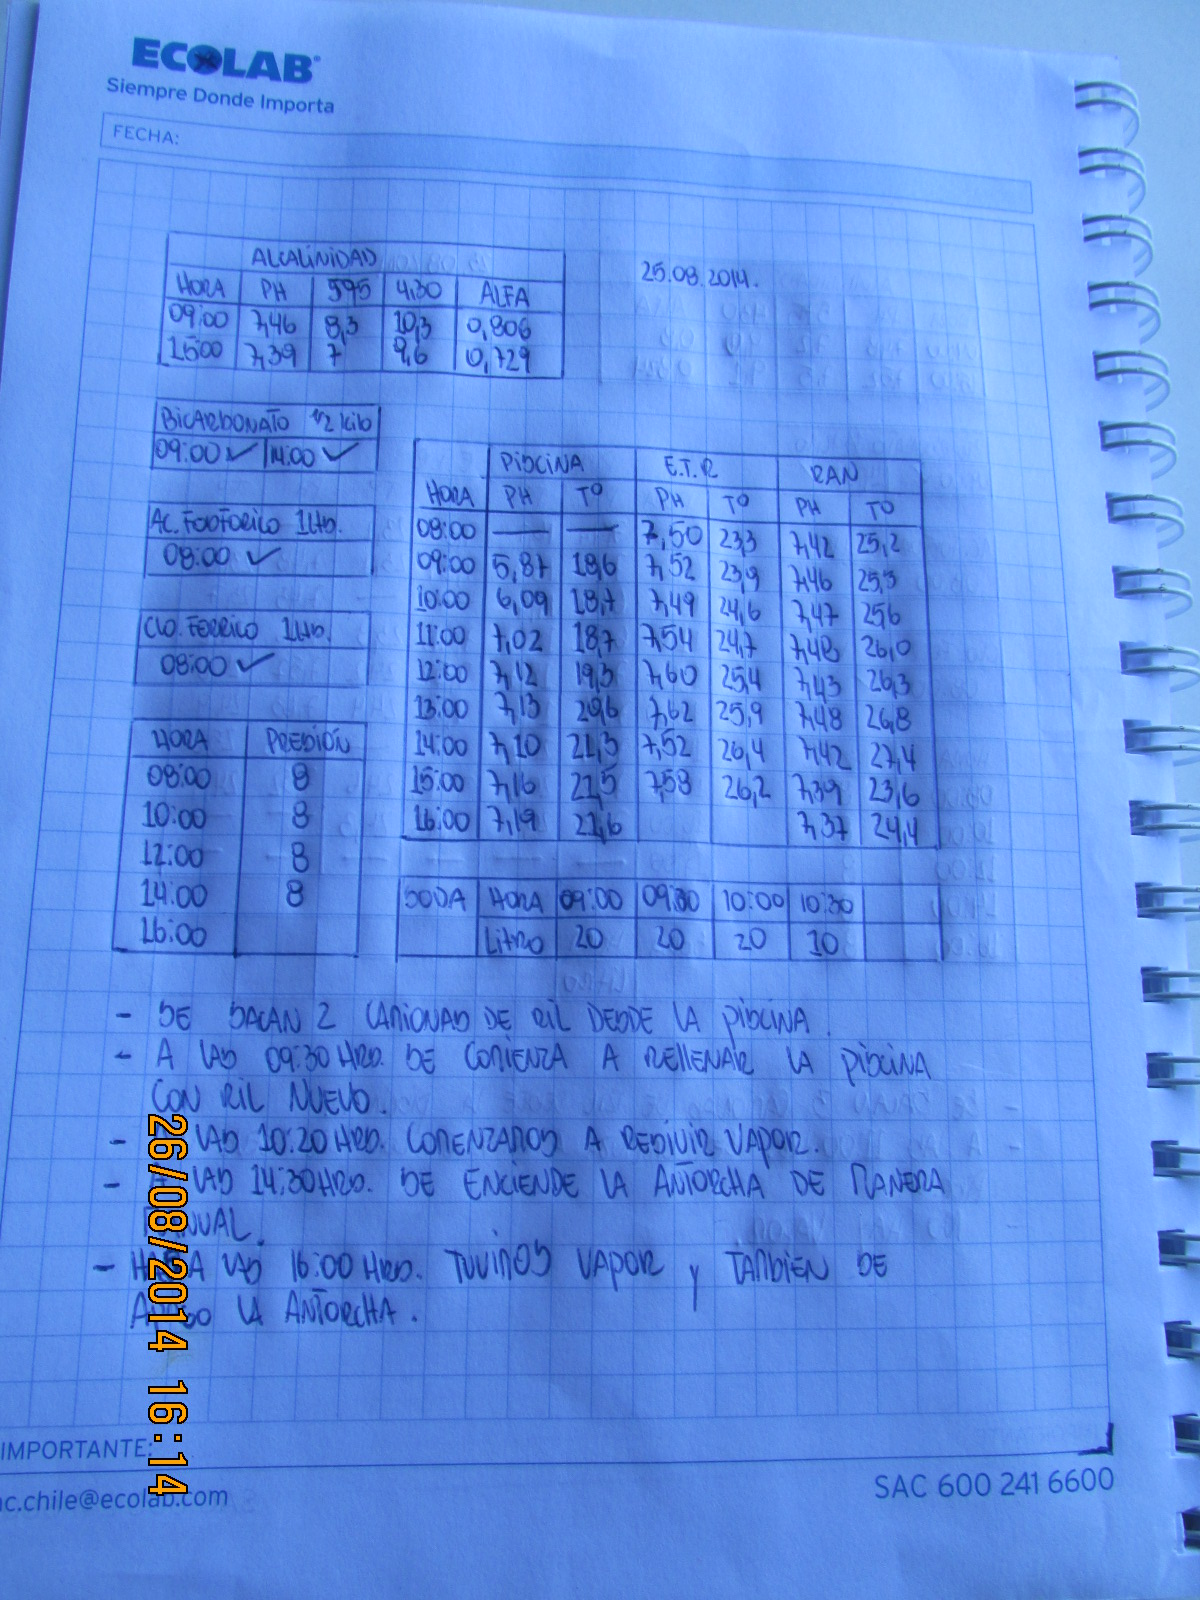 ECOLAB
Siempre Donde Importa
FECHA:
25.08.2014.
ALCALINIDAD
HORA PH 595 4,30 ALFA
09:00 7,46 8,3 10,3 0,806
15:00 7,39 7 9,6 0,729
BICARBONATO 1/2 Kilo
09:00 ✓ 14:00 ✓
AC. FOSFORICO 1 Lto.
08:00 ✓
CLO. FERRICO 1 Lto.
08:00 ✓
HORA PRESIÓN
08:00 8
10:00 8
12:00 8
14:00 8
16:00
PISCINA E.T.R RAN
HORA PH Tº PH Tº PH Tº
08:00 — — 7,50 23,3 7,42 25,2
09:00 5,87 18,6 7,52 23,9 7,46 25,5
10:00 6,09 18,7 7,49 24,6 7,47 25,6
11:00 7,02 18,7 7,54 24,7 7,48 26,0
12:00 7,12 19,3 7,60 25,4 7,43 26,3
13:00 7,13 20,6 7,62 25,9 7,48 26,8
14:00 7,10 21,3 7,52 26,4 7,42 27,4
15:00 7,16 21,5 7,58 26,2 7,39 23,6
16:00 7,19 21,6 7,37 24,4
SODA HORA 09:00 09:30 10:00 10:30
Litro 20 20 20 10
- SE SACAN 2 CAMIONAS DE RIL DESDE LA PISCINA.
- A LAS 09:30 HRS. SE COMIENZA A RELLENAR LA PISCINA
CON RIL NUEVO.
- LAS 10:20 HRS. COMENZAMOS A RESIVIR VAPOR.
- A LAS 14:30 HRS. SE ENCIENDE LA ANTORCHA DE MANERA
MANUAL.
- HASTA LAS 16:00 HRS. TUVIMOS VAPOR Y TAMBIEN SE
APAGO LA ANTORCHA.
26/08/2014 16:14
IMPORTANTE:
ac.chile@ecolab.com
SAC 600 241 6600